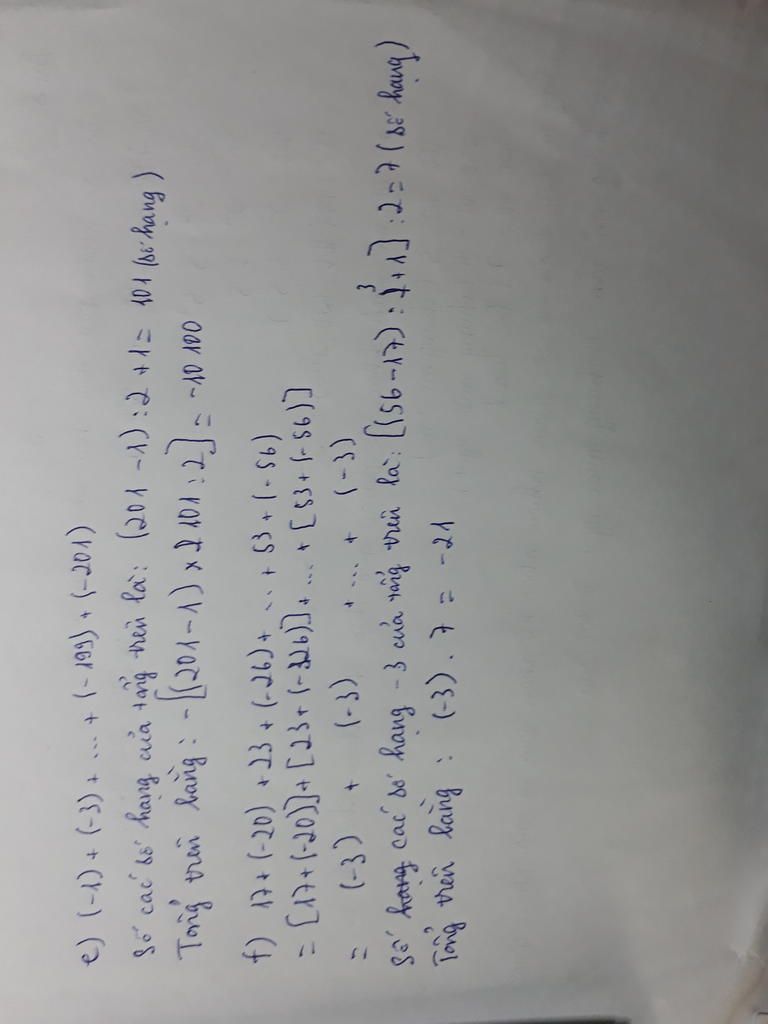 e) (-1) + (-3) + ... + (-199) + (-201)
Số các số hạng của tổng trên là: (201 - 1) : 2 + 1 = 101 (số hạng)
Tổng trên bằng: - [(201 - 1) x 101 : 2] = -10 100
f) 17 + (-20) + 23 + (-26) + ... + 53 + (-56)
= [17 + (-20)] + [23 + (-26)] + ... + [53 + (-56)]
= (-3) + (-3) + ... + (-3)
Số các số hạng -3 của tổng trên là: [(56 - 17) : 3 + 1] : 2 = 7 (số hạng)
Tổng trên bằng: (-3) . 7 = -21